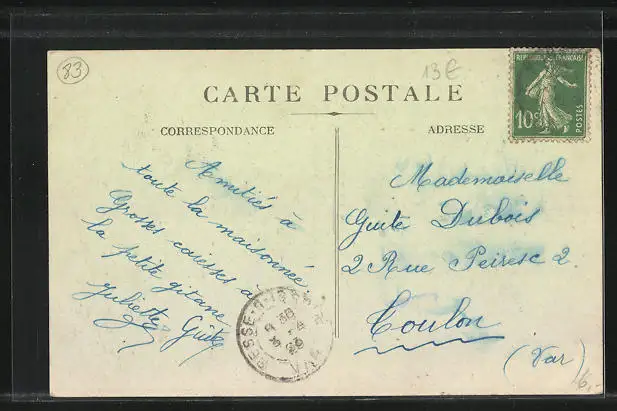 83
13€
CARTE POSTALE
REPUBLIQUE FRANÇAISE
10c
POSTES
CORRESPONDANCE
ADRESSE
Amitiés à
toute la maisonnée
Grosses caresses à
la petite gitane
Juliette Guite
Mademoiselle
Guite Dubois
2 Rue Peiresc 2.
Toulon
(Var)
6,-
BESSE-S-ISSOLE
VAR